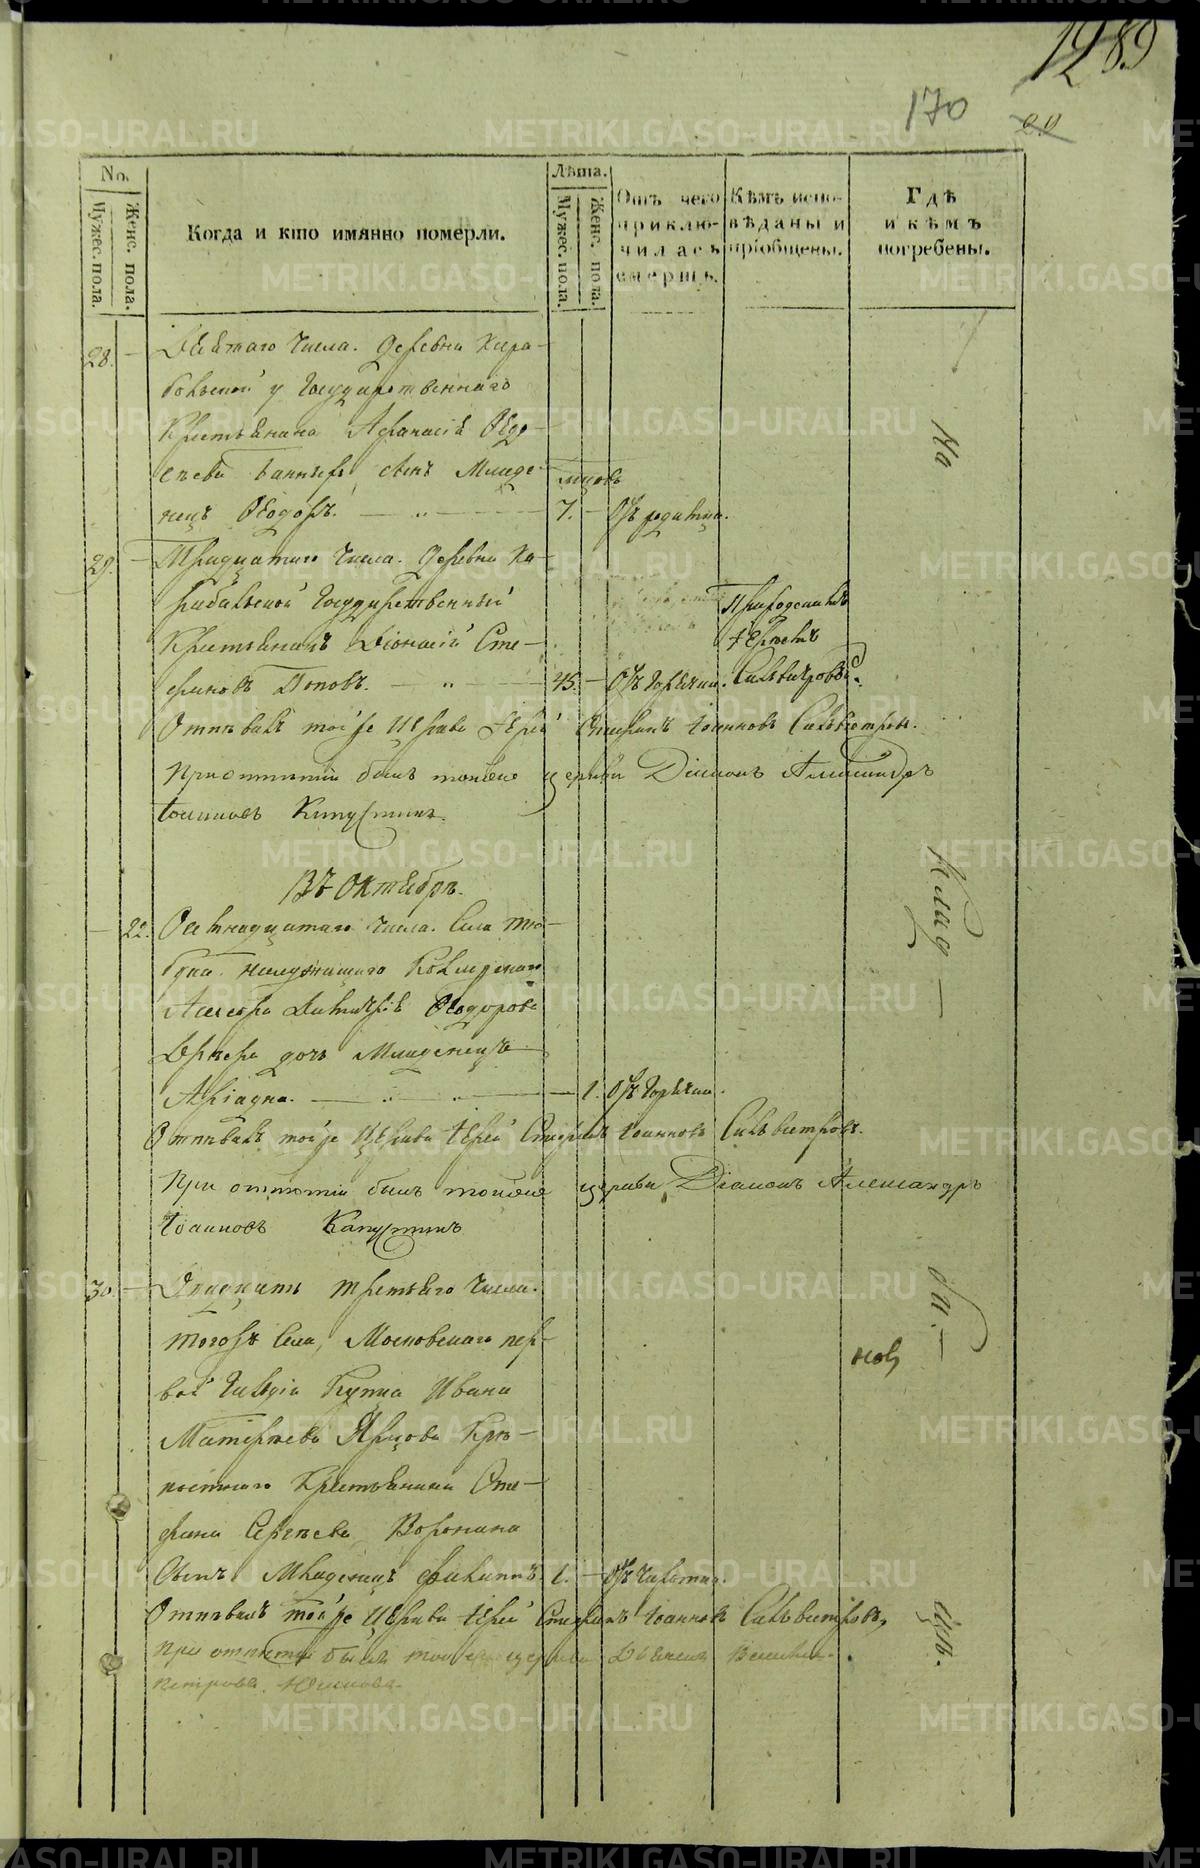 1289
170
No.
Мужес. пола.
Женс. пола.
Когда и кто имянно померли.
Лѣта.
Мужес. пола.
Женс. пола.
Отъ чего приклю-
чилась
смерть.
Кѣмъ испо-
вѣданы и
пріобщены.
Гдѣ
и кѣмъ
погребены.
28. Девятаго числа. Деревни Кара-
больской у Государственнаго
Крестьянина Афанасія Ѳедо-
сѣева сынъ Младе-
нецъ Ѳеодоръ. мѣсяцовъ 7. Отъ родимца.
29. Тридцатаго числа. Деревни Ка-
рабольской Государственный
Крестьянинъ Діонисій Сте-
фановъ Поповъ. 45. Отъ горячки. Приходскимъ Іереемъ Сильвестровымъ.
Отпѣвалъ той же Церкви Іерей Стефанъ Іоанновъ Сильвестровъ.
При отпѣтіи былъ тойже церкви Діаконъ Александръ
Іоанновъ Капустинъ.
Въ Октябрѣ.
22. Осьмнадцатаго числа. Села Тю-
бука
Ѳеодорова
дочь Младенецъ
Аріадна. 1. Отъ горячки.
Отпѣвалъ той же Церкви Іерей Стефанъ Іоанновъ Сильвестровъ.
При отпѣтіи былъ тойже церкви Діаконъ Александръ
Іоанновъ Капустинъ
30. Двадцать третьяго числа.
Тогожъ Села, Московскаго пер-
вой Гильдіи Купца Ивана
Матвѣева Ярцова Крѣ-
постнаго Крестьянина Сте-
фана Сергѣева Воронина
Сынъ Младенецъ Филиппъ. 1. Отъ чахотки.
Отпѣвалъ той же Церкви Іерей Стефанъ Іоанновъ Сильвестровъ,
При отпѣтіи былъ той же церкви Дьячекъ
Петровъ.
На
клад
би
щѣ.
METRIKI.GASO-URAL.RU